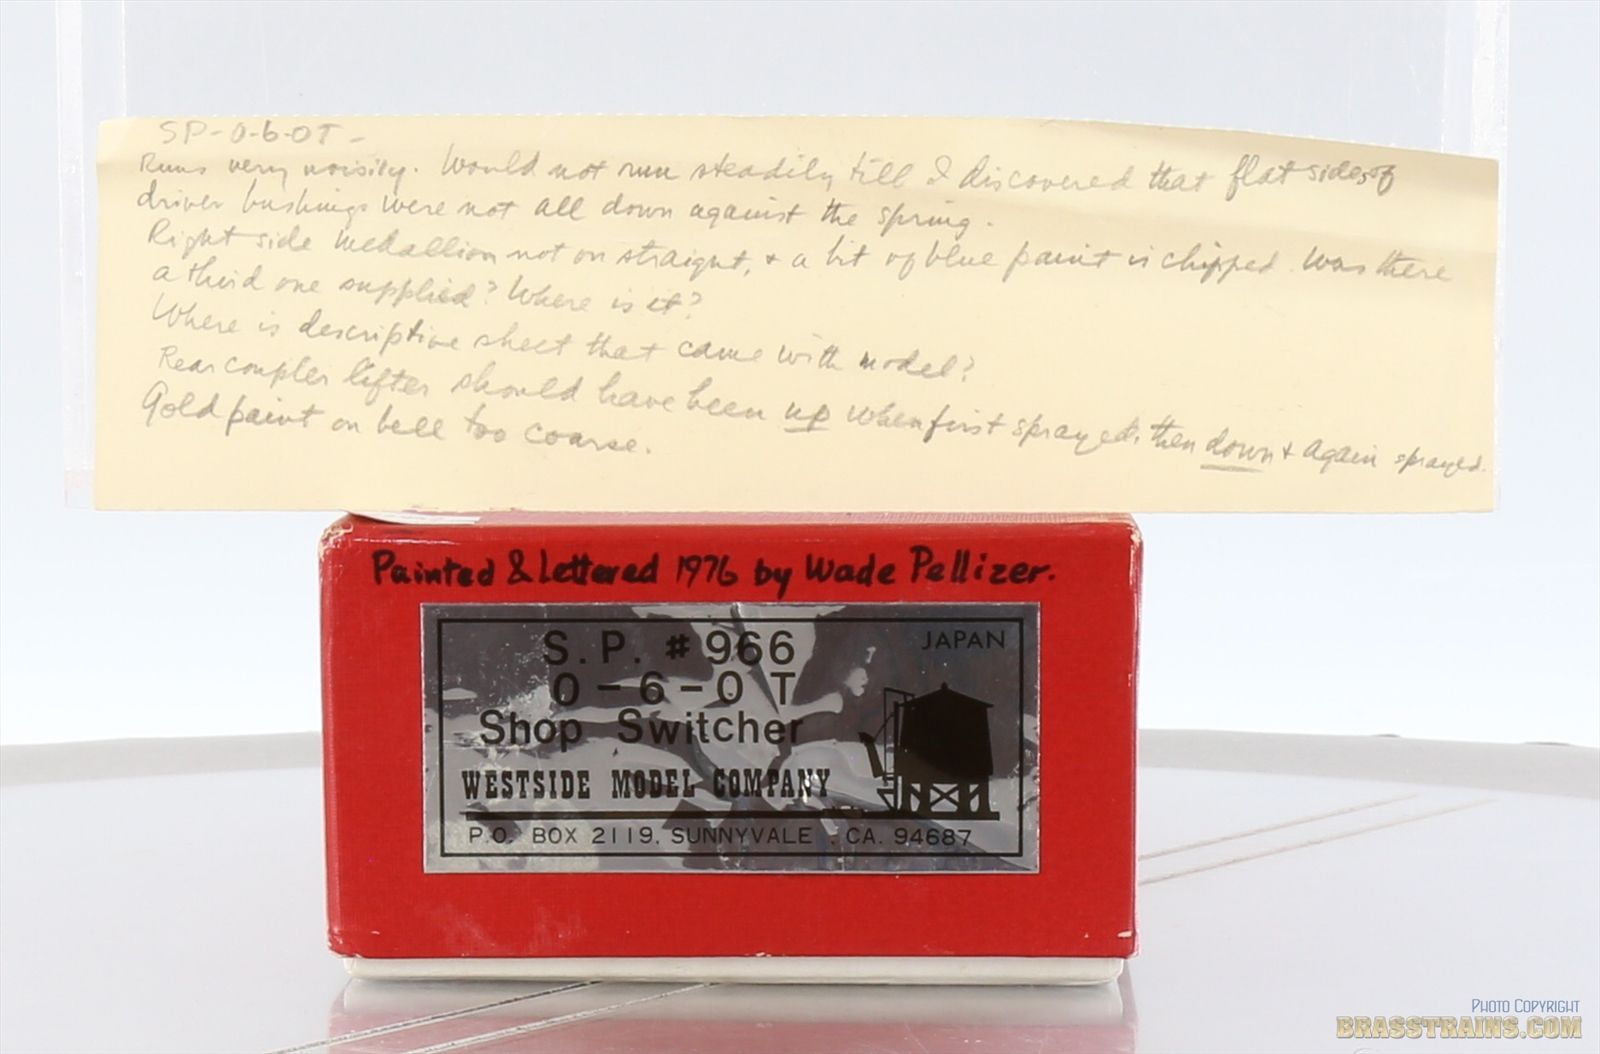 SP-0-6-0T-
Runs very noisily. Would not run steadily till I discovered that flat sides of
driver bushings were not all down against the spring.
Right side medallion not on straight, + a bit of blue paint is chipped. Was there
a third one supplied? Where is it?
Where is descriptive sheet that came with model?
Rear coupler lifter should have been up when first sprayed, then down + again sprayed.
Gold paint on bell too coarse.
Painted & Lettered 1976 by Wade Pellizer.
S.P. #966
JAPAN
0-6-0 T
Shop Switcher
WESTSIDE MODEL COMPANY
P.O. BOX 2119, SUNNYVALE, CA. 94687
PHOTO COPYRIGHT
BRASSTRAINS.COM